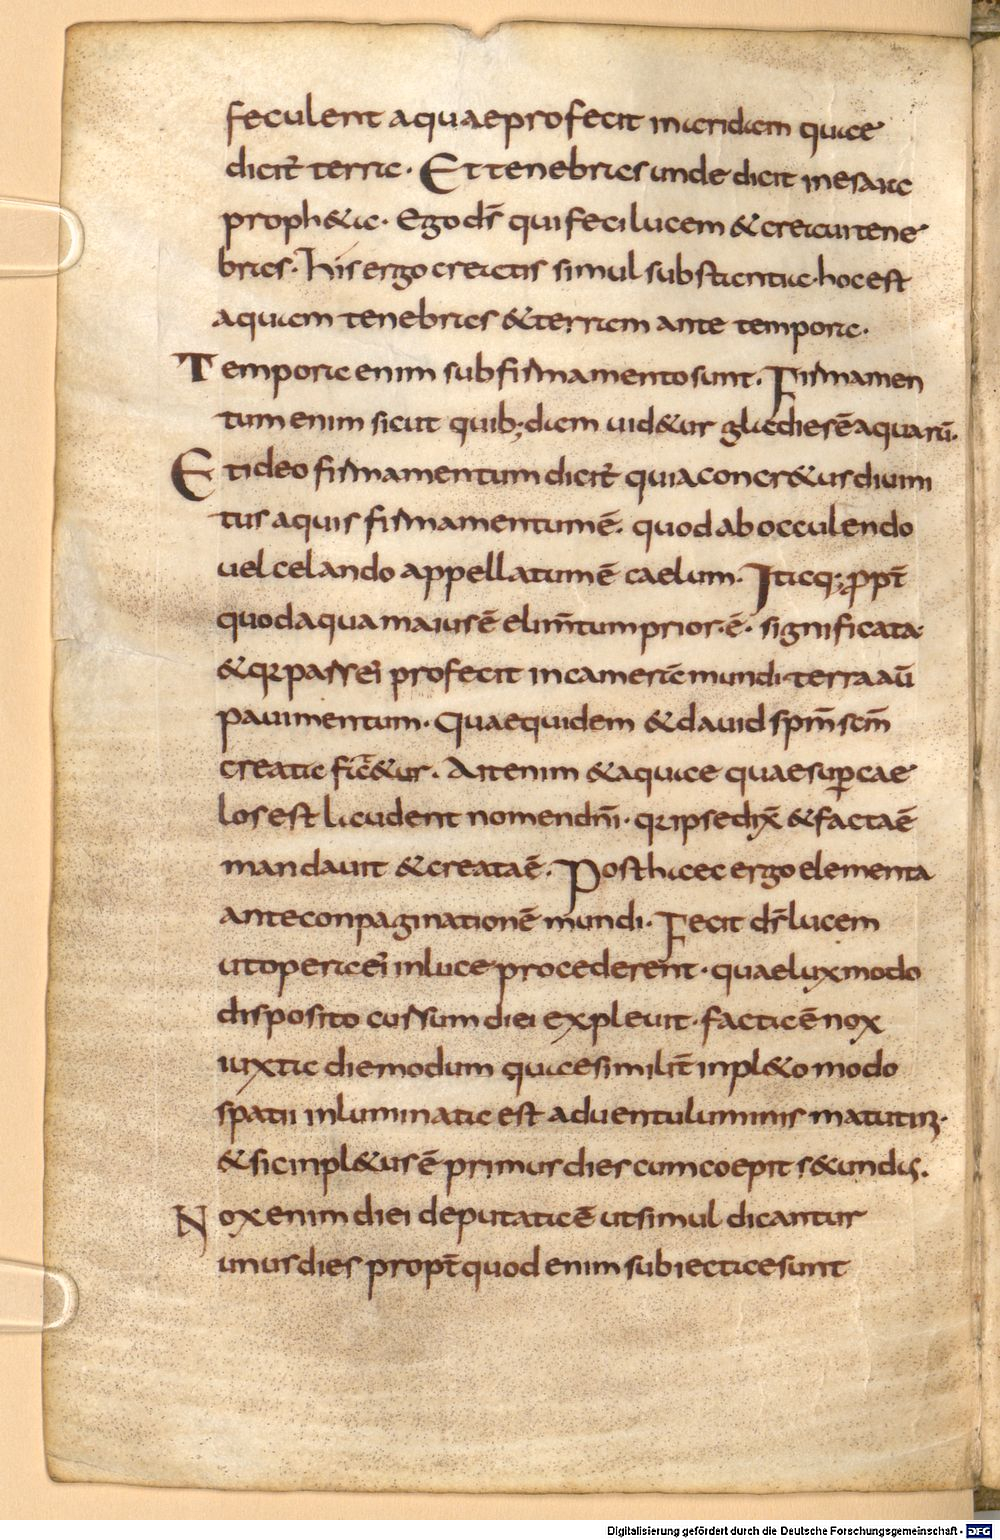 feculenta quae profecit in aridam quae
dicit̄ terra. Et tenebras unde dicit in esaia
proph&a. Ego d̄s qui feci lucem & creaui tene
bras. His ergo creatis simul substantia. hoc est
aquam tenebras & terram ante tempora.
Tempora enim sub firmamento sunt. Firmamen
tum enim sicut quib; dam uid&ur glacies ē aquarū.
Et ideo firmamentum dicit̄ quia concr&us diuini
tus aquis firmamentum ē. quod ab occulendo
uel celando appellatum ē caelum. Itaq; ꝓpt̄
quod aqua maius ē elim̄tum prior. ē. significata.
& qr pars ei profecit in camerā mundi. terra aū
pauimentum. Quae quidem & dauid sp̄m sc̄m
creata fat̄&ur. Ait enim & aquae quae sup̄ cae
los est laudent nomen dn̄i. qr ipse dix̄ & facta ē
mandauit & creata ē. Post haec ergo elementa
ante conpaginationē mundi. Fecit d̄s lucem
ut opera ei in luce procederent. quae lux modo
disposito cursum diei expleuit. facta ē nox
iuxta die modum quae similit̄ inpl&o modo
spatii inluminata est aduentu luminis matutin̄.
& sic inpl&us ē primus dies cum coepit s&undus.
Nox enim diei deputata ē ut simul dicantur
unus dies propt̄ quod enim subiecta sunt
Digitalisierung gefördert durch die Deutsche Forschungsgemeinschaft - DFG